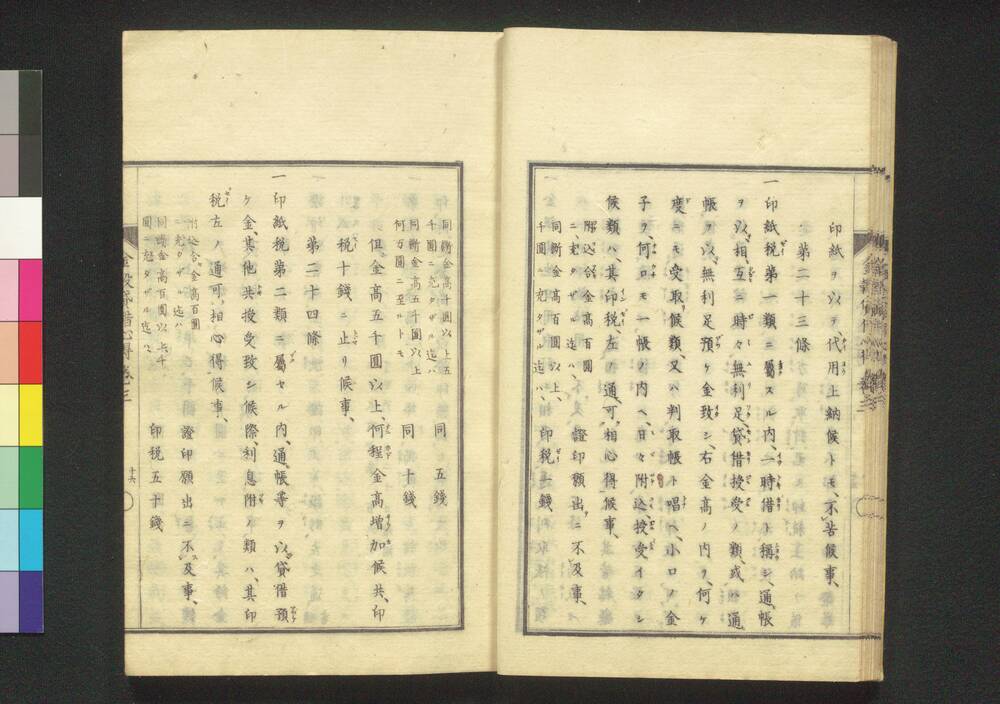 印紙ヲ以テ、代用上納候トモ、不苦候事、
第二十三條
一印紙税第一類ニ屬スル内、一時借ト稱シ、通帳
ヲ以、相互ニ時々無利足、貸借授受ノ類或ハ通
帳ヲ以、無利足預ケ金致シ右金高ノ内ヲ、何ケ
度ニモ、受取候類、又ハ判取帳ト唱ヘ、小口ノ金
子ヲ、何口モ一帳ノ内ヘ、日々附込、授受イタシ
候類ハ、其印税左ノ通、可相心得候事、
附込合金高百圓
ニ充タザル迄ハ、 證印願出ニ不及事、
同斷金高百圓以上、
千圓ニ充タザル迄ハ、 印税一錢、
同斷金高千圓以上五
千圓ニ充タザル迄ハ 同 五錢
同斷金高五千圓以上
何万圓ニ至ルトモ 同 十錢
但、金高五千圓以上、何程金高増加候共、印
税十錢ニ止リ候事、
第二十四條
一印紙税第二類ニ屬セル内、通帳等ヲ以、貸借預
ケ金、其他共授受致シ候際、利息附ノ類ハ、其印
税左ノ通可相心得候事、
附込合金高百圓
ニ充タザル迄ハ 證印願出ニ不及事、
同斷金高百圓以上千
圓ニ充タザル迄ハ 印税五十錢
十六